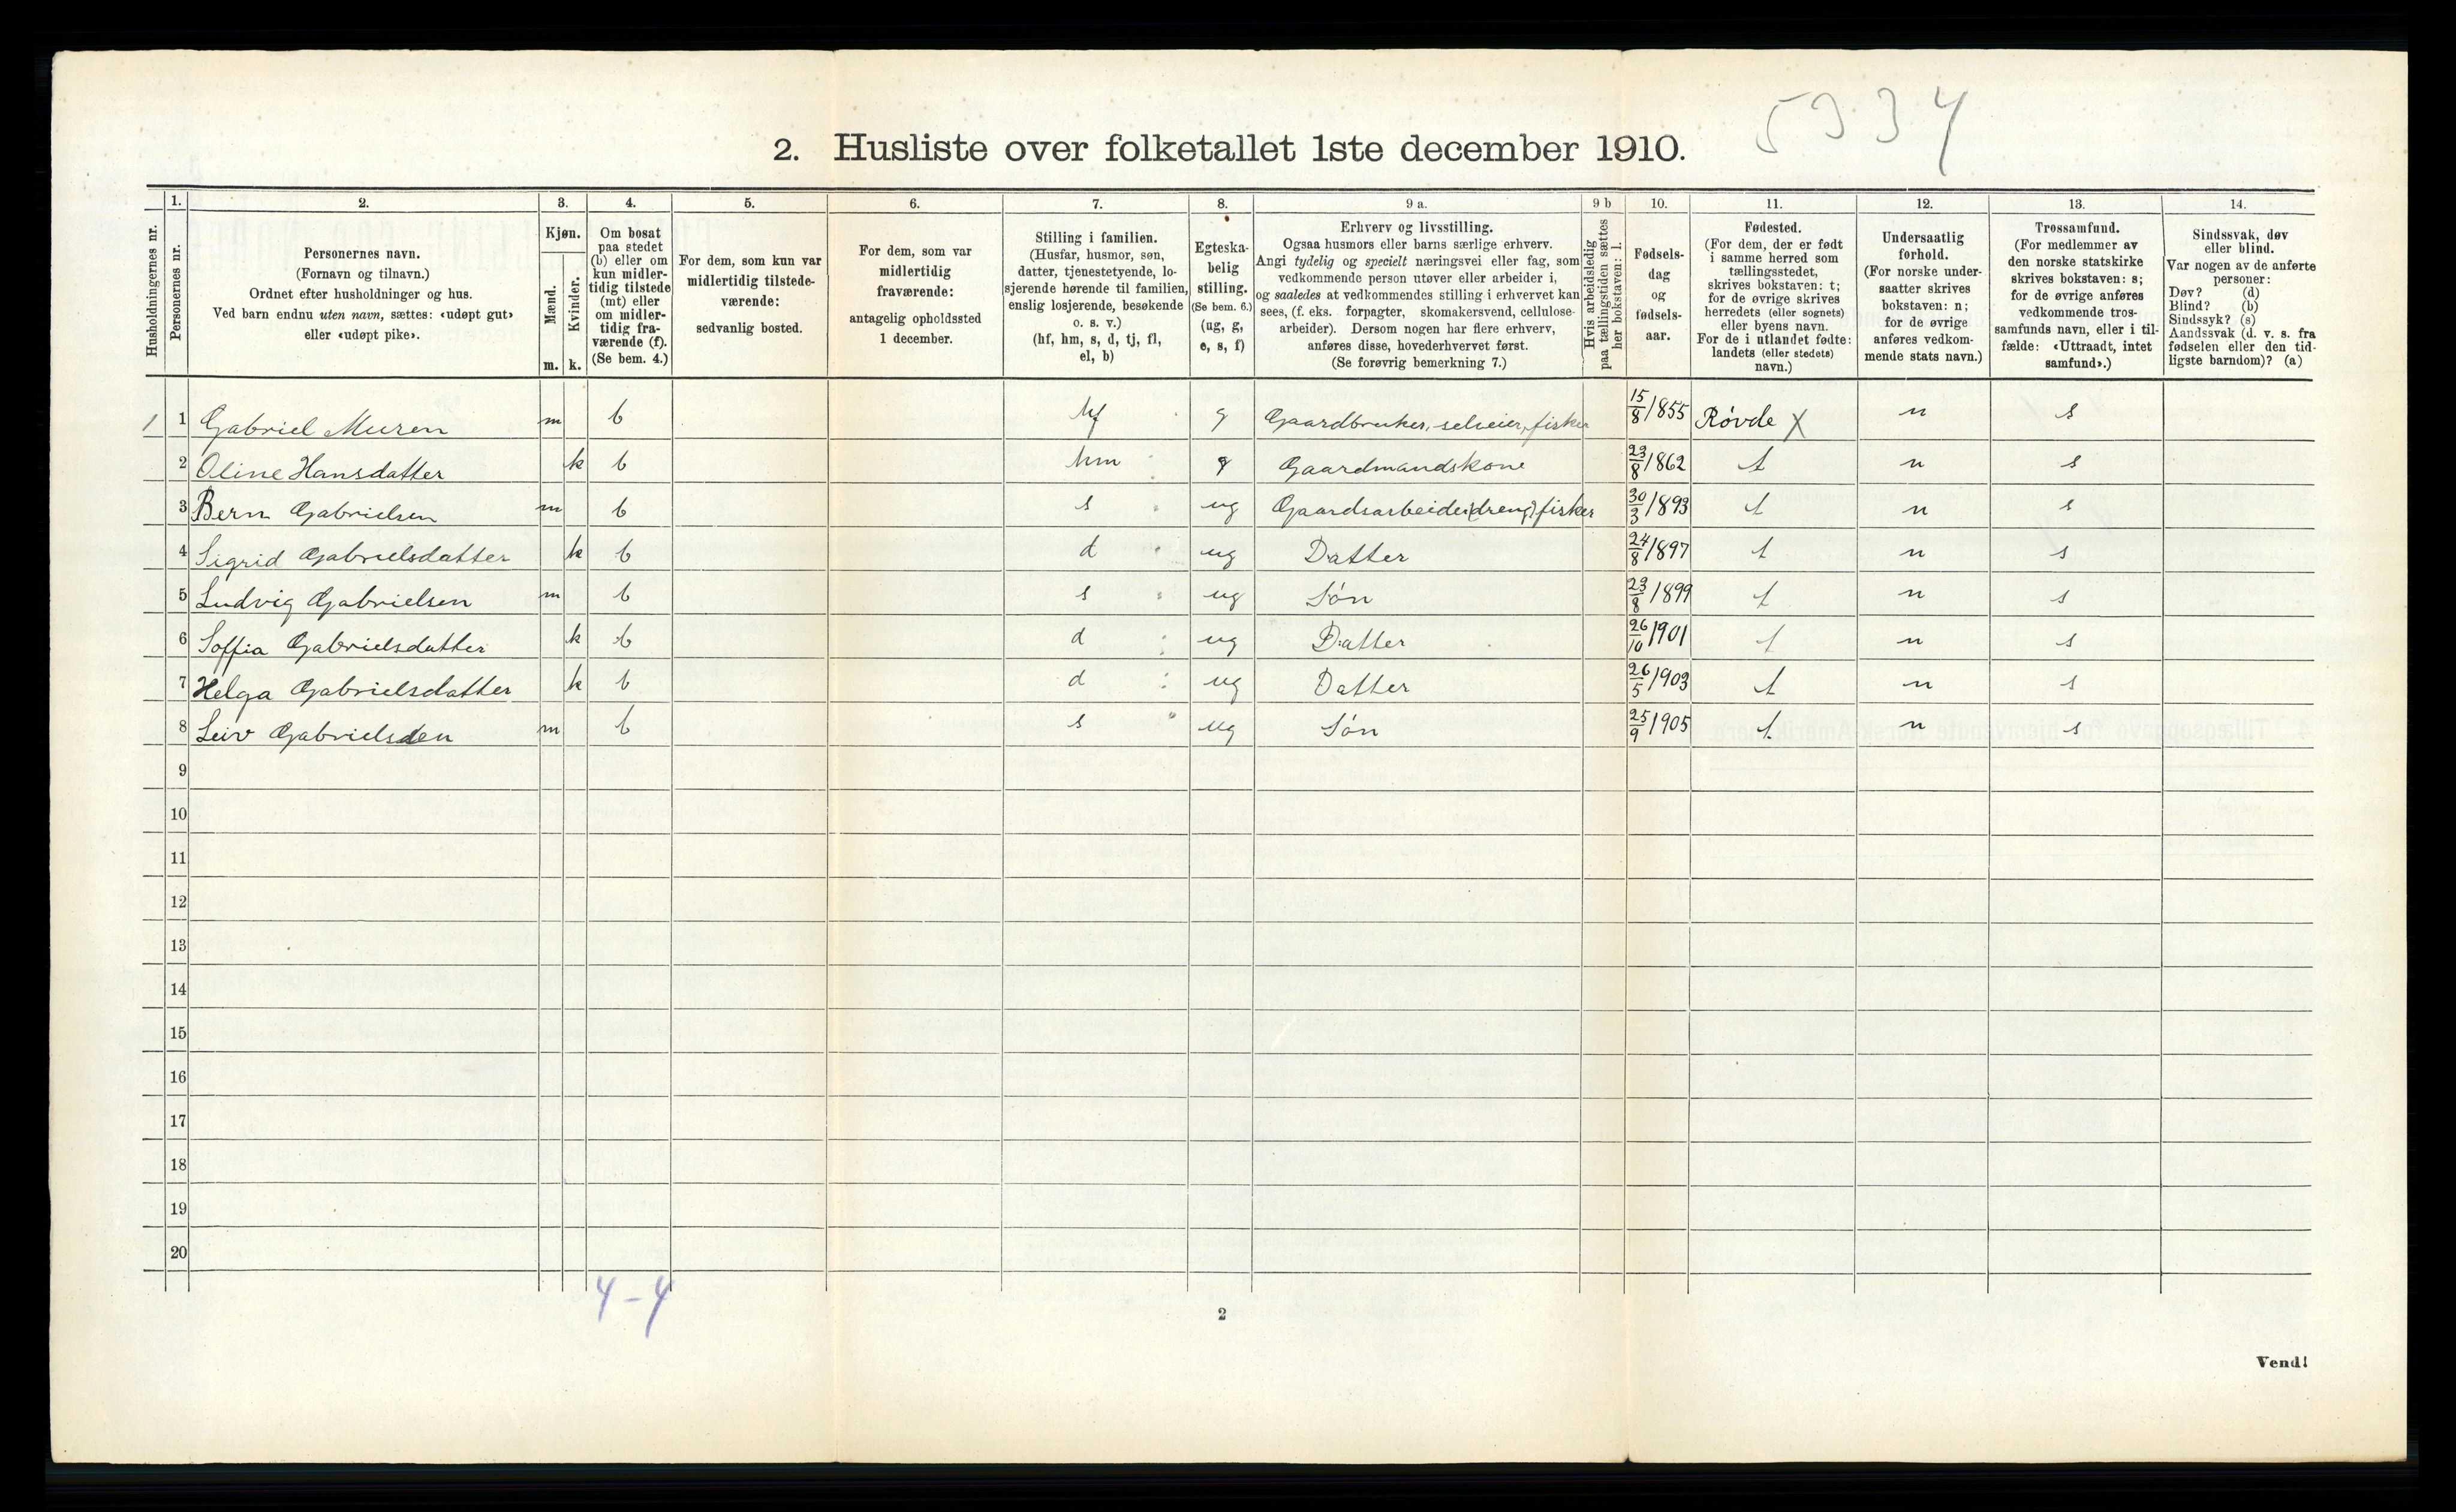 5334
2. Husliste over folketallet 1ste december 1910.
Husholdningernes nr.
1. Personernes nr.
2. Personernes navn.
(Fornavn og tilnavn.)
Ordnet efter husholdninger og hus.
Ved barn endnu uten navn, sættes: «udøpt gut»
eller «udøpt pike».
3. Kjøn.
Mænd. m.
Kvinder. k.
4. Om bosat
paa stedet
(b) eller om
kun midler-
tidig tilstede
(mt) eller
om midler-
tidig fra-
værende (f).
(Se bem. 4.)
5. For dem, som kun var
midlertidig tilstede-
værende:
sedvanlig bosted.
6. For dem, som var
midlertidig
fraværende:
antagelig opholdssted
1 december.
7. Stilling i familien.
(Husfar, husmor, søn,
datter, tjenestetyende, lo-
sjerende hørende til familien,
enslig losjerende, besøkende
o. s. v.)
(hf, hm, s, d, tj, fl,
el, b)
8. Egteska-
belig
stilling.
(Se bem. 6.)
(ug, g,
e, s, f)
9 a. Erhverv og livsstilling.
Ogsaa husmors eller barns særlige erhverv.
Angi tydelig og specielt næringsvei eller fag, som
vedkommende person utøver eller arbeider i,
og saaledes at vedkommendes stilling i erhvervet kan
sees, (f. eks. forpagter, skomakersvend, cellulose-
arbeider). Dersom nogen har flere erhverv,
anføres disse, hovederhvervet først.
(Se forøvrig bemerkning 7.)
9 b Hvis arbeidsledig
paa tællingstiden sættes
her bokstaven: l.
10. Fødsels-
dag
og
fødsels-
aar.
11. Fødested.
(For dem, der er født
i samme herred som
tællingsstedet,
skrives bokstaven: t;
for de øvrige skrives
herredets (eller sognets)
eller byens navn.
For de i utlandet fødte:
landets (eller stedets)
navn.)
12. Undersaatlig
forhold.
(For norske under-
saatter skrives
bokstaven: n;
for de øvrige
anføres vedkom-
mende stats navn.)
13. Trossamfund.
(For medlemmer av
den norske statskirke
skrives bokstaven: s;
for de øvrige anføres
vedkommende tros-
samfunds navn, eller i til-
fælde: «Uttraadt, intet
samfund».)
14. Sindssvak, døv
eller blind.
Var nogen av de anførte
personer:
Døv? (d)
Blind? (b)
Sindssyk? (s)
Aandssvak (d. v. s. fra
fødselen eller den tid-
ligste barndom)? (a)
1 1 Gabriel Muren m b hf g Gaardbruker, selveier, fisker 15/8 1855 Røvde X n s
2 Oline Hansdatter k b hm g Gaardmandskone 23/8 1862 t n s
3 Bern Gabrielsen m b s ug Gaardsarbeider (dreng) fisker 30/3 1893 t n s
4 Sigrid Gabrielsdatter k b d ug Datter 24/8 1897 t n s
5 Ludvig Gabrielsen m b s ug Søn 23/8 1899 t n s
6 Soffia Gabrielsdatter k b d ug Datter 26/10 1901 t n s
7 Helga Gabrielsdatter k b d ug Datter 26/5 1903 t n s
8 Leiv Gabrielsen m b s ug Søn 25/9 1905 t n s
9
10
11
12
13
14
15
16
17
18
19
20
4-4
2
Vend!